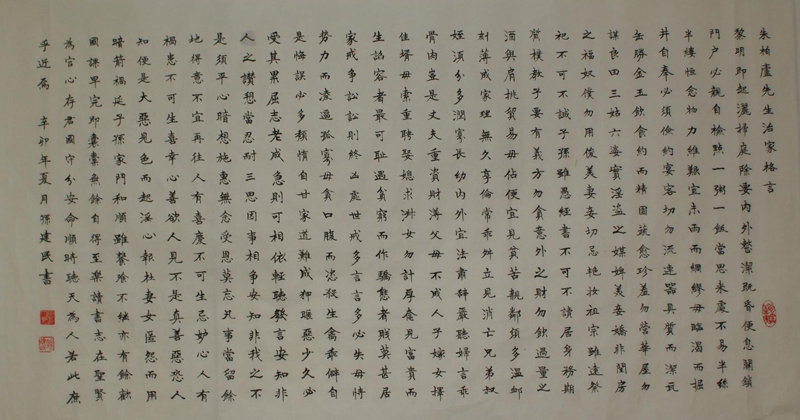 朱柏廬先生治家格言
黎明即起灑掃庭除要內外整潔既昏便息關鎖
門戶必親自檢點一粥一飯當思來處不易半絲
半縷恒念物力維艱宜未雨而綢繆毋臨渴而掘
井自奉必須儉約宴客切勿流連器具質而潔瓦
缶勝金玉飲食約而精園蔬愈珍羞勿營華屋勿
謀良田三姑六婆實淫盜之媒婢美妾嬌非閨房
之福奴僕勿用俊美妻妾切忌艷妝祖宗雖遠祭
祀不可不誠子孫雖愚經書不可不讀居身務期
質樸教子要有義方勿貪意外之財勿飲過量之
酒與肩挑貿易毋佔便宜見貧苦親鄰須多溫卹
刻薄成家理無久享倫常乖舛立見消亡兄弟叔
姪須分多潤寡長幼內外宜法肅辭嚴聽婦言乖
骨肉豈是丈夫重資財薄父母不成人子嫁女擇
佳婿毋索重聘娶媳求淑女勿計厚奩見富貴而
生諂容者最可恥遇貧窮而作驕態者賤莫甚居
家戒爭訟訟則終凶處世戒多言言多必失毋恃
勢力而凌逼孤寡勿貪口腹而恣殺生禽乖僻自
是悔誤必多頹惰自甘家道難成狎暱惡少久必
受其累屈志老成急則可相依輕聽發言安知非
人之譖愬當忍耐三思因事相爭安知非我之不
是須平心暗想施惠無念受恩莫忘凡事當留餘
地得意不宜再往人有喜慶不可生忌妒心人有
禍患不可生喜幸心善欲人見不是真善惡恐人
知便是大惡見色而起淫心報在妻女匿怨而用
暗箭禍延子孫家門和順雖饔飧不繼亦有餘歡
國課早完即囊橐無餘自得至樂讀書志在聖賢
為官心存君國守分安命順時聽天為人若此庶
乎近焉 辛卯年夏月孫建民書